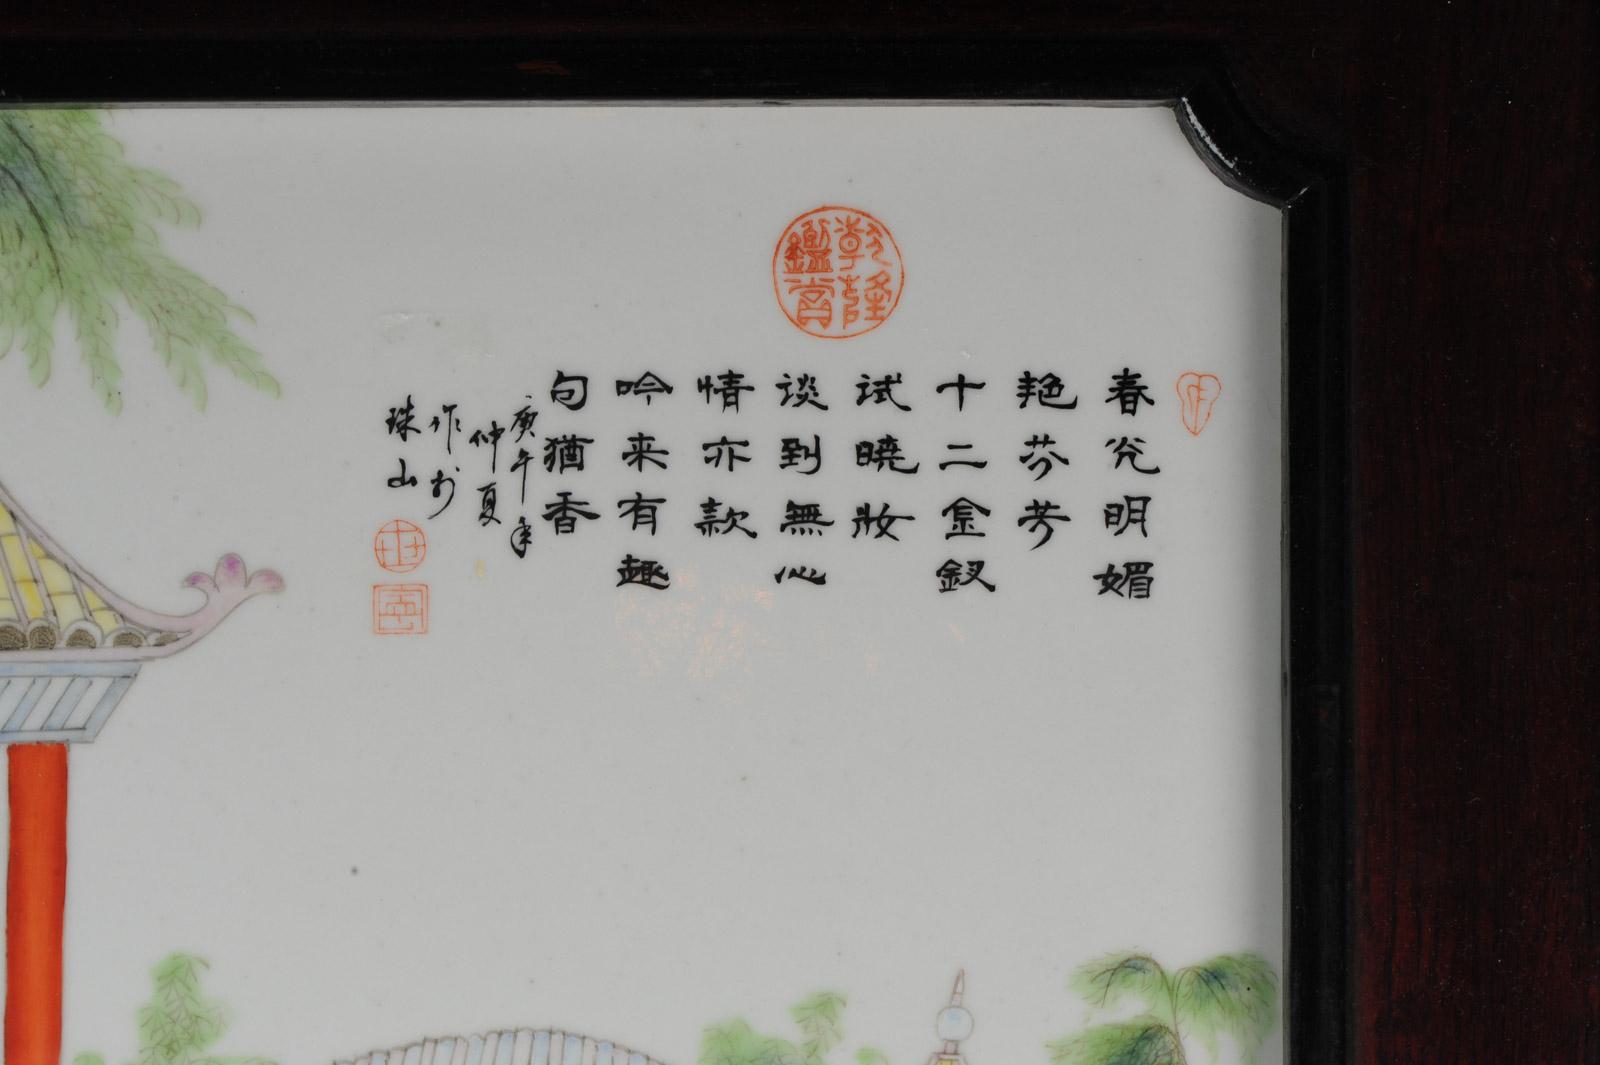 春光明媚
艳芬芳
十二金釵
試曉妝
谈到無心
情亦款
吟来有趣
句猶香
庚午年
仲夏
作於
珠山
乾隆鑑賞